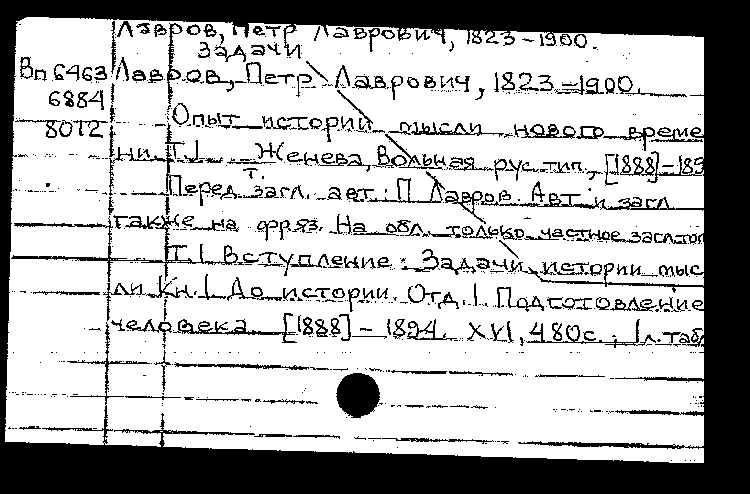 Лавров, Петр Лаврович, 1823-1900.
Задачи
Вп 6463 Лавров, Петр Лаврович, 1823-1900.
6884
8072 Опыт истории мысли нового време
ни. Т.1 Женева, Вольная рус. тип., [1888]-189
т.
Перед загл. авт.: П. Лавров. Авт. и загл.
также на фр.яз. На обл. только частное загл.то
Т.1 Вступление: Задачи истории мыс
ли Кн.1 До истории. Отд.1. Подготовление
человека [1888]-1894. XVI, 480с.; 1л.табл